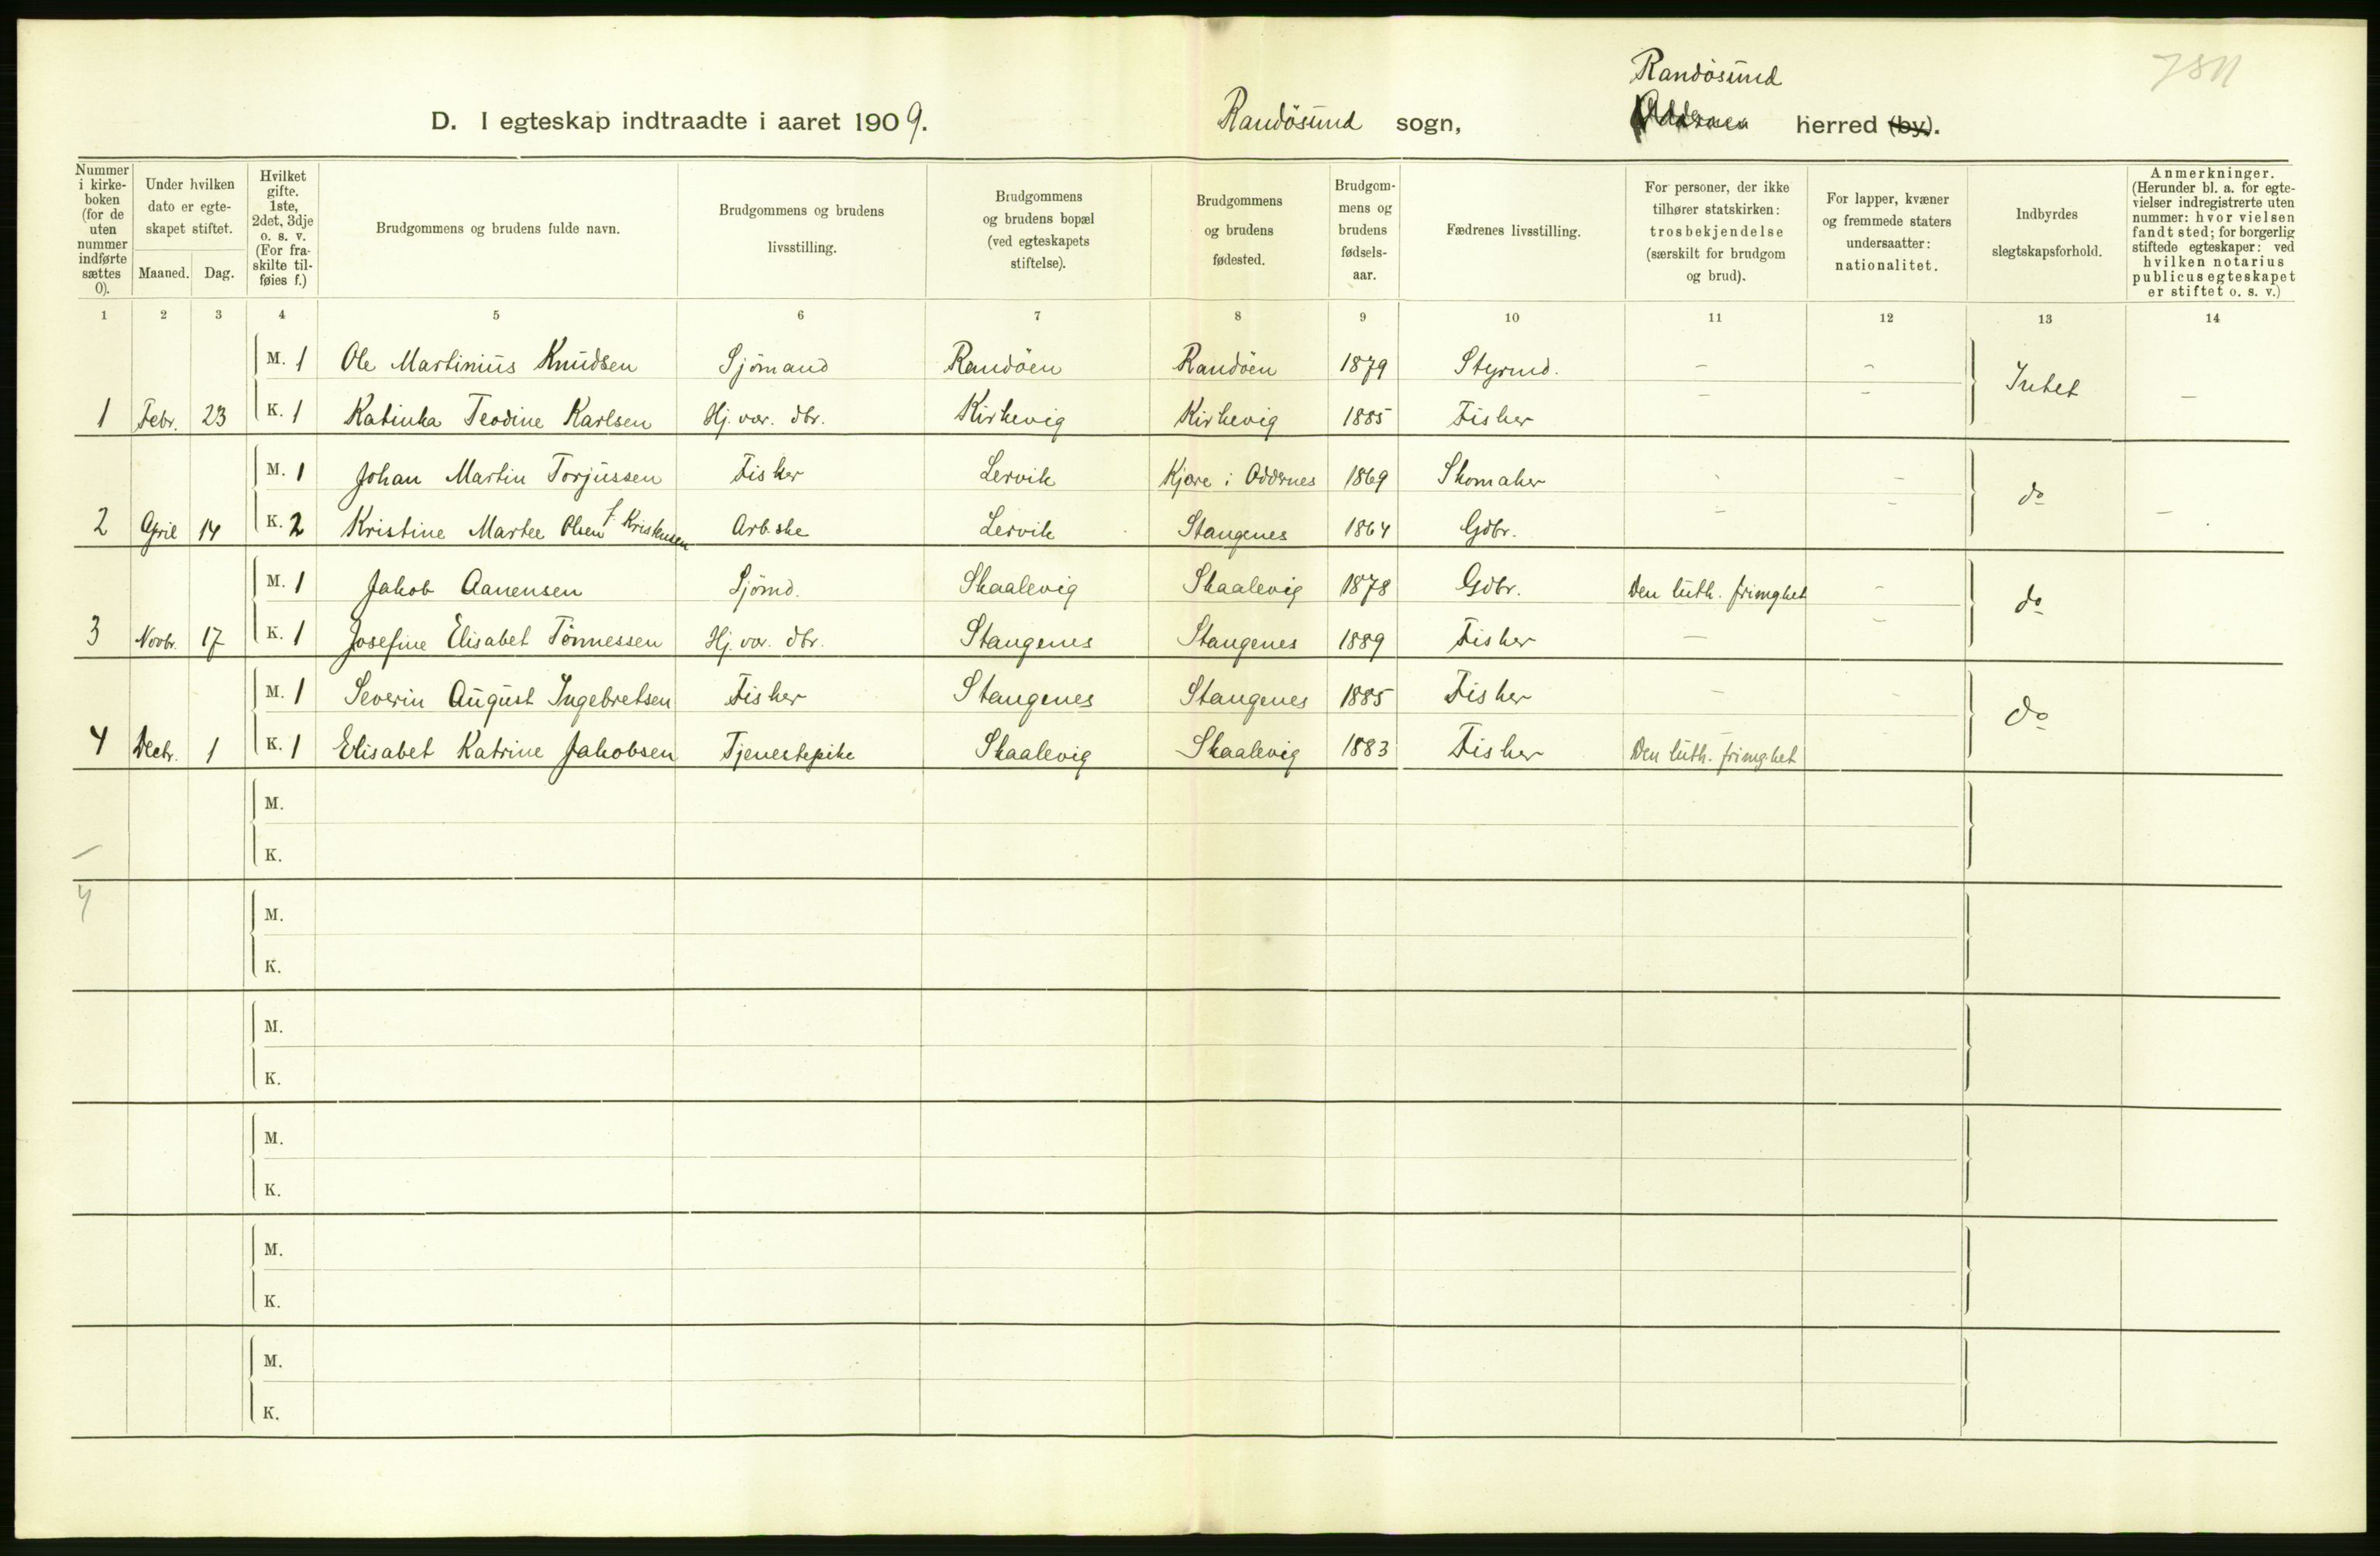 Randösund
7811
D. I egteskap indtraadte i aaret 1909. Randösund sogn, Oddernes herred (by).
Nummer i kirke-boken (for de uten nummer indførte sættes 0).
Under hvilken dato er egte-skapet stiftet.
Maaned. Dag.
Hvilket gifte. 1ste, 2det, 3dje o. s. v. (For fra-skilte til-føies f.)
Brudgommens og brudens fulde navn.
Brudgommens og brudens livsstilling.
Brudgommens og brudens bopæl (ved egteskapets stiftelse).
Brudgommens og brudens fødested.
Brudgom-mens og brudens fødsels-aar.
Fædrenes livsstilling.
For personer, der ikke tilhører statskirken: trosbekjendelse (særskilt for brudgom og brud).
For lapper, kvæner og fremmede staters undersaatter: nationalitet.
Indbyrdes slegtskapsforhold.
Anmerkninger. (Herunder bl. a. for egte-vielser indregistrerte uten nummer: hvor vielsen fandt sted; for borgerlig stiftede egteskaper: ved hvilken notarius publicus egteskapet er stiftet o. s. v.)
1 2 3 4 5 6 7 8 9 10 11 12 13 14
M. 1 Ole Martinius Knudsen Sjömand Randöen Randöen 1879 Styrmd. – – Intet
1 Febr. 23 K. 1 Katinka Teodine Karlsen Hj. vær. dtr. Kirkevig Kirkevig 1885 Fisker – – –
M. 1 Johan Martin Torjussen Fisker Lervik Kjære i Oddernes 1869 Skomaker - – do
2 April 14 K. 2 Kristine Martee Olsen f. Kristensen Arb.ske Lervik Stangenes 1864 Gdbr. – – –
M. 1 Jakob Aanensen Sjömd. Skaalevig Skaalevig 1878 Gdbr. Den luth. frimghet – do
3 Novbr. 17 K. 1 Josefine Elisabet Tönnessen Hj. vær. dtr. Stangenes Stangenes 1889 Fisker – –
M. 1 Severin August Ingebretsen Fisker Stangenes Stangenes 1885 Fisker – - do
4 Decbr. 1 K. 1 Elisabet Katrine Jakobsen Tjenestepike Skaalevig Skaalevig 1883 Fisker Den luth. frimghet –
M.
K.
4
M.
K.
M.
K.
M.
K.
M.
K.
M.
K.